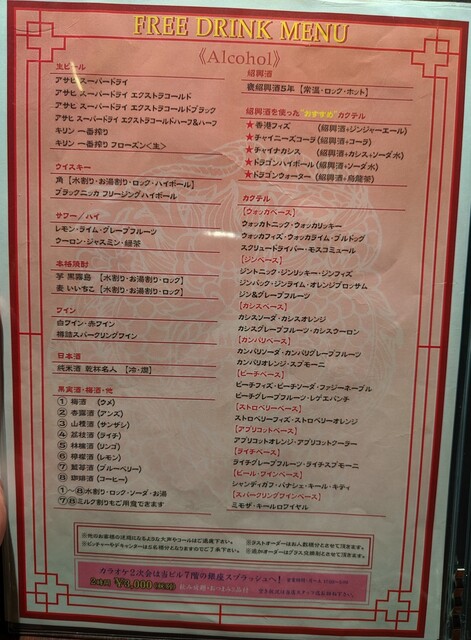 FREE DRINK MENU
《Alcohol》
生ビール
アサヒ スーパードライ
アサヒ スーパードライ エクストラコールド
アサヒ スーパードライ エクストラコールドブラック
アサヒ スーパードライ エクストラコールドハーフ&ハーフ
キリン 一番搾り
キリン 一番搾り フローズン<生>
ウイスキー
角【水割り・お湯割り・ロック・ハイボール】
ブラックニッカ フリージングハイボール
サワー/ハイ
レモン・ライム・グレープフルーツ
ウーロン・ジャスミン・緑茶
本格焼酎
芋 黒霧島 【水割り・お湯割り・ロック】
麦 いいちこ【水割り・お湯割り・ロック】
ワイン
白ワイン・赤ワイン
樽詰スパークリングワイン
日本酒
純米酒 乾杯名人 【冷・燗】
果実酒・梅酒・他
① 梅酒 (ウメ)
② 杏露酒 (アンズ)
③ 山樝酒 (サンザシ)
④ 茘枝酒 (ライチ)
⑤ 林檎酒 (リンゴ)
⑥ 檸檬酒 (レモン)
⑦ 藍苺酒 (ブルーベリー)
⑧ 珈琲酒 (コーヒー)
①〜⑧水割り・ロック・ソーダ・お湯
⑦⑧ミルク割りもご用意できます
紹興酒
甕紹興酒5年【常温・ロック・ホット】
紹興酒を使った"おすすめ"カクテル
★香港フィズ (紹興酒+ジンジャーエール)
★チャイニーズコーラ(紹興酒+コーラ)
★チャイナカシス (紹興酒+カシス+ソーダ水)
★ドラゴンハイボール(紹興酒+ソーダ水)
★ドラゴンウォーター(紹興酒+烏龍茶)
カクテル
【ウォッカベース】
ウォッカトニック・ウォッカリッキー
ウォッカフィズ・ウォッカライム・ブルドッグ
スクリュードライバー・モスコミュール
【ジンベース】
ジントニック・ジンリッキー・ジンフィズ
ジンバック・ジンライム・オレンジブロッサム
ジン&グレープフルーツ
【カシスベース】
カシスソーダ・カシスオレンジ
カシスグレープフルーツ・カシスウーロン
【カンパリベース】
カンパリソーダ・カンパリグレープフルーツ
カンパリオレンジ・スプモーニ
【ピーチベース】
ピーチフィズ・ピーチソーダ・ファジーネーブル
ピーチグレープフルーツ・レゲエパンチ
【ストロベリーベース】
ストロベリーフィズ・ストロベリーオレンジ
【アプリコットベース】
アプリコットオレンジ・アプリコットクーラー
【ライチベース】
ライチグレープフルーツ・ライチスプモーニ
【ビール・ワインベース】
シャンディガフ・パナシェ・キール・キティ
【スパークリングワインベース】
ミモザ・キールロワイヤル
※他のお客様の迷惑になるような大声やコールはご遠慮下さい。
※ピッチャーやデキャンターは5名様分となりますのでご了承下さい。
※ラストオーダーはお人数様分とさせて頂きます。
※追加オーダーはグラス交換制とさせて頂きます。
カラオケ2次会は当ビル7階の銀座スプラッシュへ!
2時間 ¥3,000